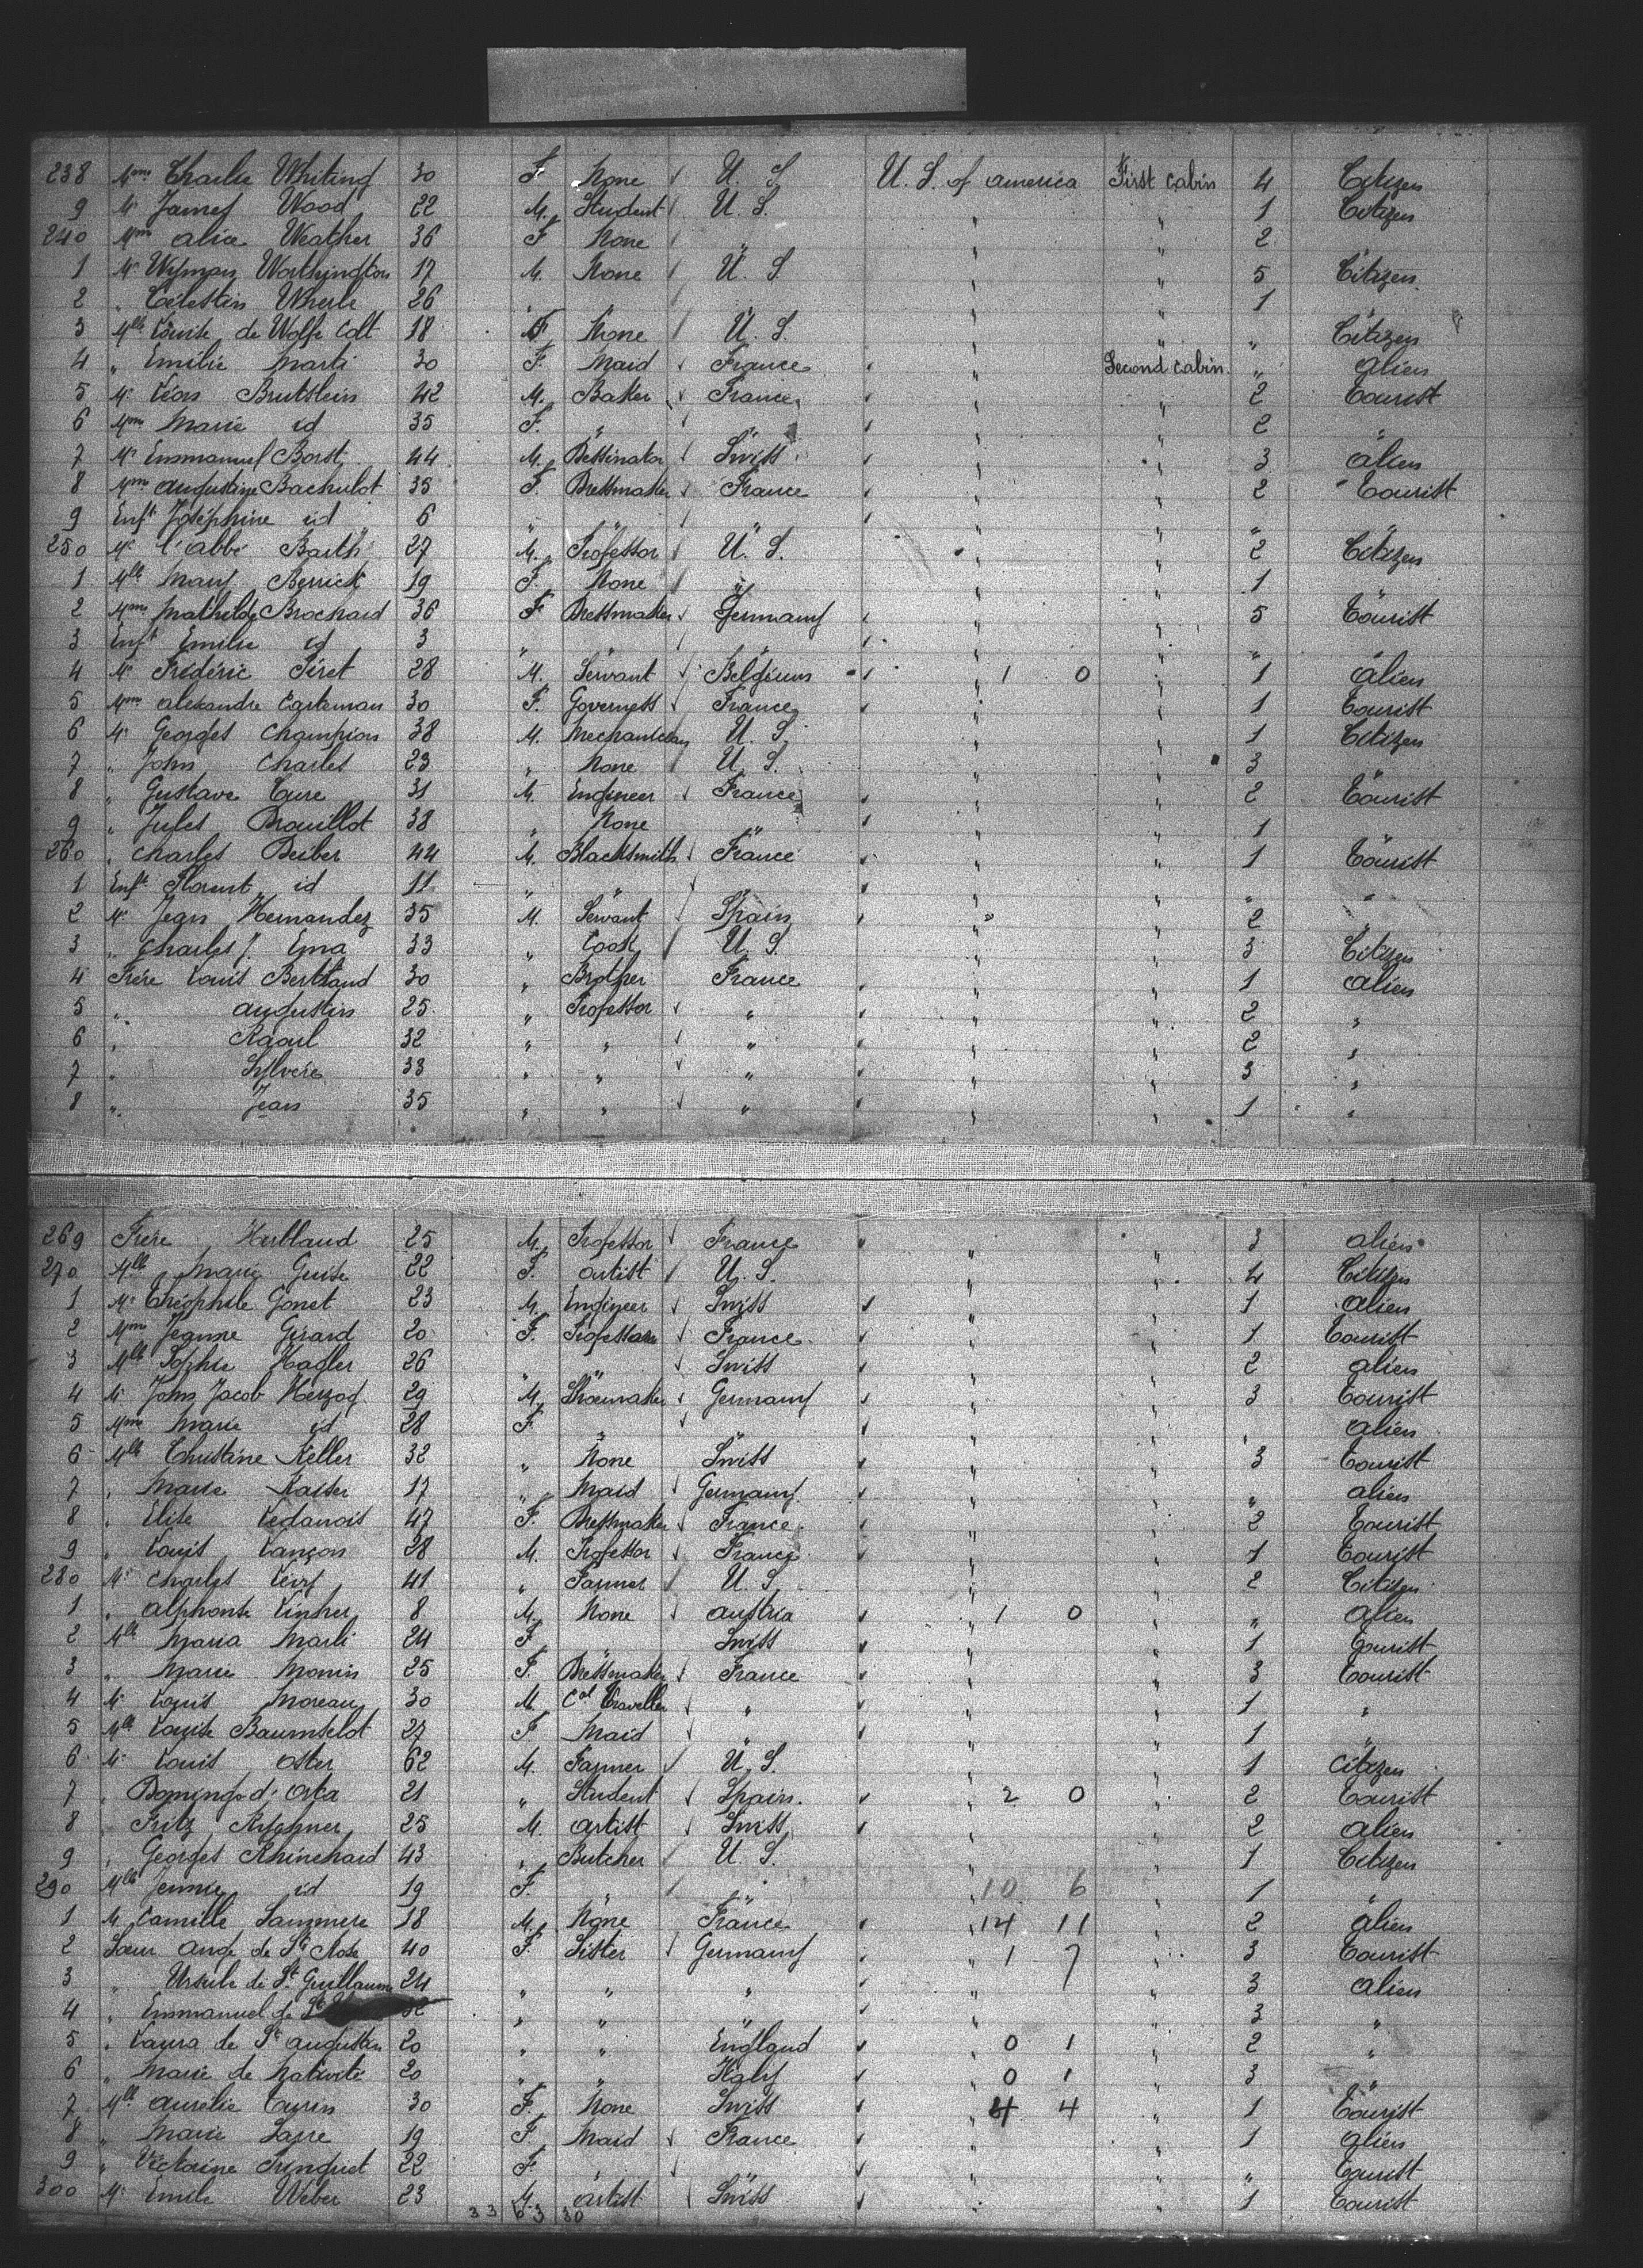 238 Mme Charles Whiting 30 F. None U. S. U. S. of america First cabin 4 Citizen
9 Mr James Wood 22 M. Student U. S. " " 1 Citizen
240 Mme alice Weather 36 F None " " " 2
1 Mr Wyman Worthington 17 M. None U. S. " " 5 Citizen
2 " Célestin Wherle 26 " " " 1
3 Mlle Louise de Wolfe Colt 18 F. None U. S. " " " Citizen
4 " Emilie Marti 30 F. Maid France " Second cabin " alien
5 Mr Léon Brutslein 42 M. Baker France " " 2 Tourist
6 Mme Marie id 35 F. " " " 2 "
7 Mr Emmanuel Borst 44 M. Dessinator Swiss " " 3 alien
8 Mme augustine Bachulot 35 F. Dressmaker France " " 2 Tourist
9 Enft Joséphine id 6 " " " " " " "
250 Mr l'abbé Barth 27 M. Professor U. S. " " 2 Citizen
1 Mlle Mary Berrick 19 F. None " " " 1
2 Mme Mathilde Brochard 36 F Dressmaker Germany " " 5 Tourist
3 Enft Emilie id 3 " " " " "
4 Mr Frédéric Piret 28 M. Servant Belgium " 1 0 " 1 alien
5 Mme alexandre Carteman 30 F. Governess France " " 1 Tourist
6 Mr Georges Champion 38 M. U. S. " " 1 Citizen
7 " John Charles 23 " None U. S. " " 3 "
8 " Gustave Cure 31 M. Engineer France " " 2 Tourist
9 " Jules Drouillot 38 " None " " " 1
260 " Charles Deiber 44 M. Blacksmith France " " 1 Tourist
1 Enft Florent id 11 " " " " " " "
2 Mr Jean Hernandez 35 M. Servant Spain " " 2 "
3 " Charles J. Ema 33 " Cook U. S. " " 3 Citizen
4 Frère Louis Bertrand 30 " Brother France " " 1 alien
5 " augustin 25 " Professor " " " 2 "
6 " Raoul 32 " " " " " 2 "
7 " Sylvère 33 " " " " " 3 "
8 " Jean 35 " " " " " 1 "
269 Frère 25 M. Professor France " " 3 alien
270 Mlle Marie Guise 22 F. artist U. S. " " 4 Citizen
1 Mr Théophile Gonet 23 M. Engineer Swiss " " 1 alien
2 Mme Jeanne Girard 20 F. Professor France " " 1 Tourist
3 Mlle Sophie Hagler 26 " " Swiss " " 2 alien
4 Mr John Jacob Herzog 29 M. Shoemaker Germany " " 3 Tourist
5 Mme Marie id 28 F. " " " " alien
6 Mlle Christine Keller 32 " None Swiss " " 3 Tourist
7 " Marie Kaiser 17 " Maid Germany " " " alien
8 " Elise Ledanois 47 F. Dressmaker France " " 2 Tourist
9 " Louis Lançon 28 M. Professor France " " 1 Tourist
280 Mr Charles Levy 41 " Farmer U. S. " " 2 Citizen
1 " alphonse Linher 8 M. None austria " 1 0 " " alien
2 Mlle Maria Marli 24 F. Swiss " " 1 Tourist
3 " Marie Monin 25 F. Dressmaker France " " 3 Tourist
4 Mr Louis Moreau 30 M. Cal Traveller " " " 1 "
5 Mlle Louise Baumselot 27 F Maid " " " 1 "
6 Mr Louis Oster 62 M. Farmer U. S. " " 1 Citizen
7 " Domingo d' Orta 21 " Student Spain " 2 0 " 2 Tourist
8 " Fritz 25 M. artist Swiss " " 2 alien
9 " Georges Rhinehard 43 " Butcher U. S. " " 1 Citizen
290 Mlle Jennie id 19 F. " " " 10 6 " 1 "
1 M. Camille 18 M. None France " 14 11 " 2 alien
2 Soeur Ange de Ste Rose 40 F. Sister Germany " 1 7 " 3 Tourist
3 " Ursule de St Guillaume 24 " " " " " 3 alien
4 " Emmanuel de St " " " " 3 "
5 " Laura de St augustin 20 " " England " 0 1 " 2 "
6 " Marie de Nativité 20 " " Italy " 0 1 " 3 "
7 Mlle aurelie Turin 30 F. None Swiss " 4 4 " 1 Tourist
8 " Marie Sarre 19 F. Maid France " " 1 alien
9 " Victorine 22 F. " " " " " Tourist
300 Mr Emile Weber 23 M. artist Swiss " " 1 Tourist
33 63 30